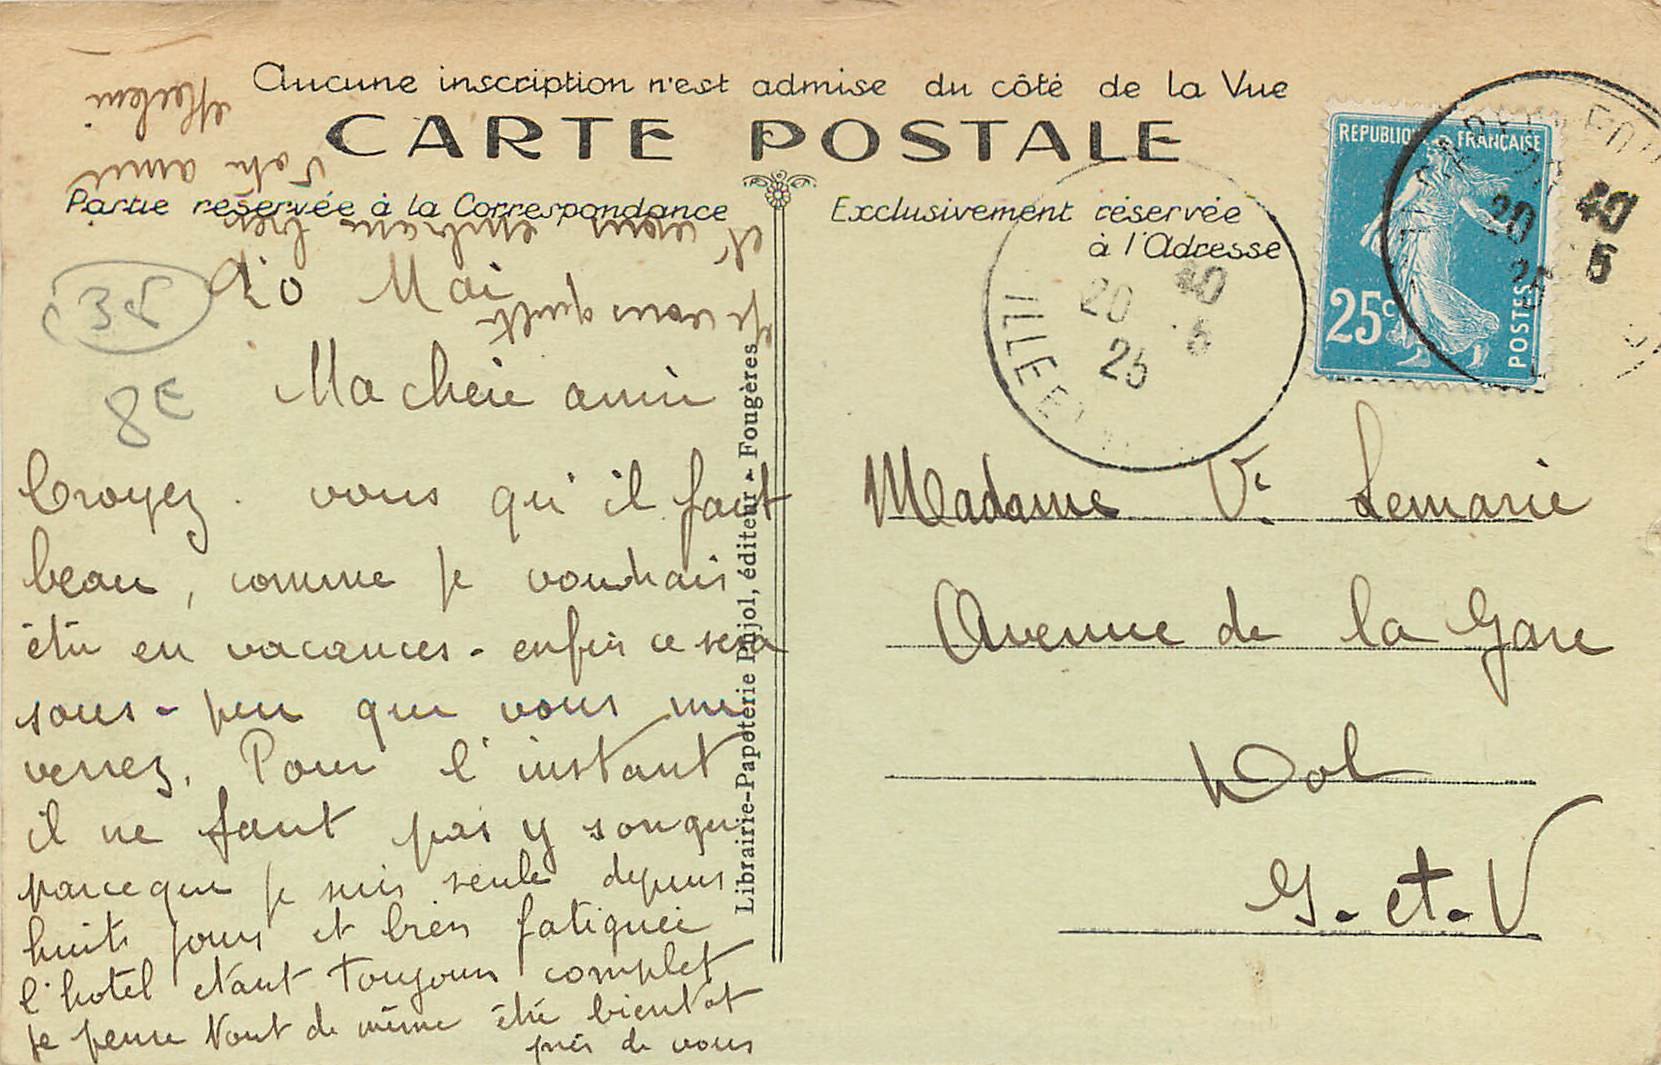 Aucune inscription n'est admise du côté de la Vue
CARTE POSTALE
Partie reservée à la Correspondance
Exclusivement réservée
à l'Adresse
REPUBLIQUE FRANÇAISE
25c
POSTES
20 40
5
25
ILLE ET
20 40
5
25
35
8€
20 Mai
Ma cheie amie
Croyez-vous qu'il faut
beau, comme je voudrais
être en vacances - enfin ce sera
sous-peu que vous me
verrez. Pour l'instant
il ne faut pas y songer
parceque je suis seule depuis
huits jours et bien fatiguée
l'hotel etant toujours complet
je pense tout de même être bientot
près de vous
je vous quitte
et vous embrasse bien
Votre amie
Librairie-Papeterie Pujol, éditeur - Fougères
Madame Ve Lemarie
Avenue de la Gare
Dol
I-et-V